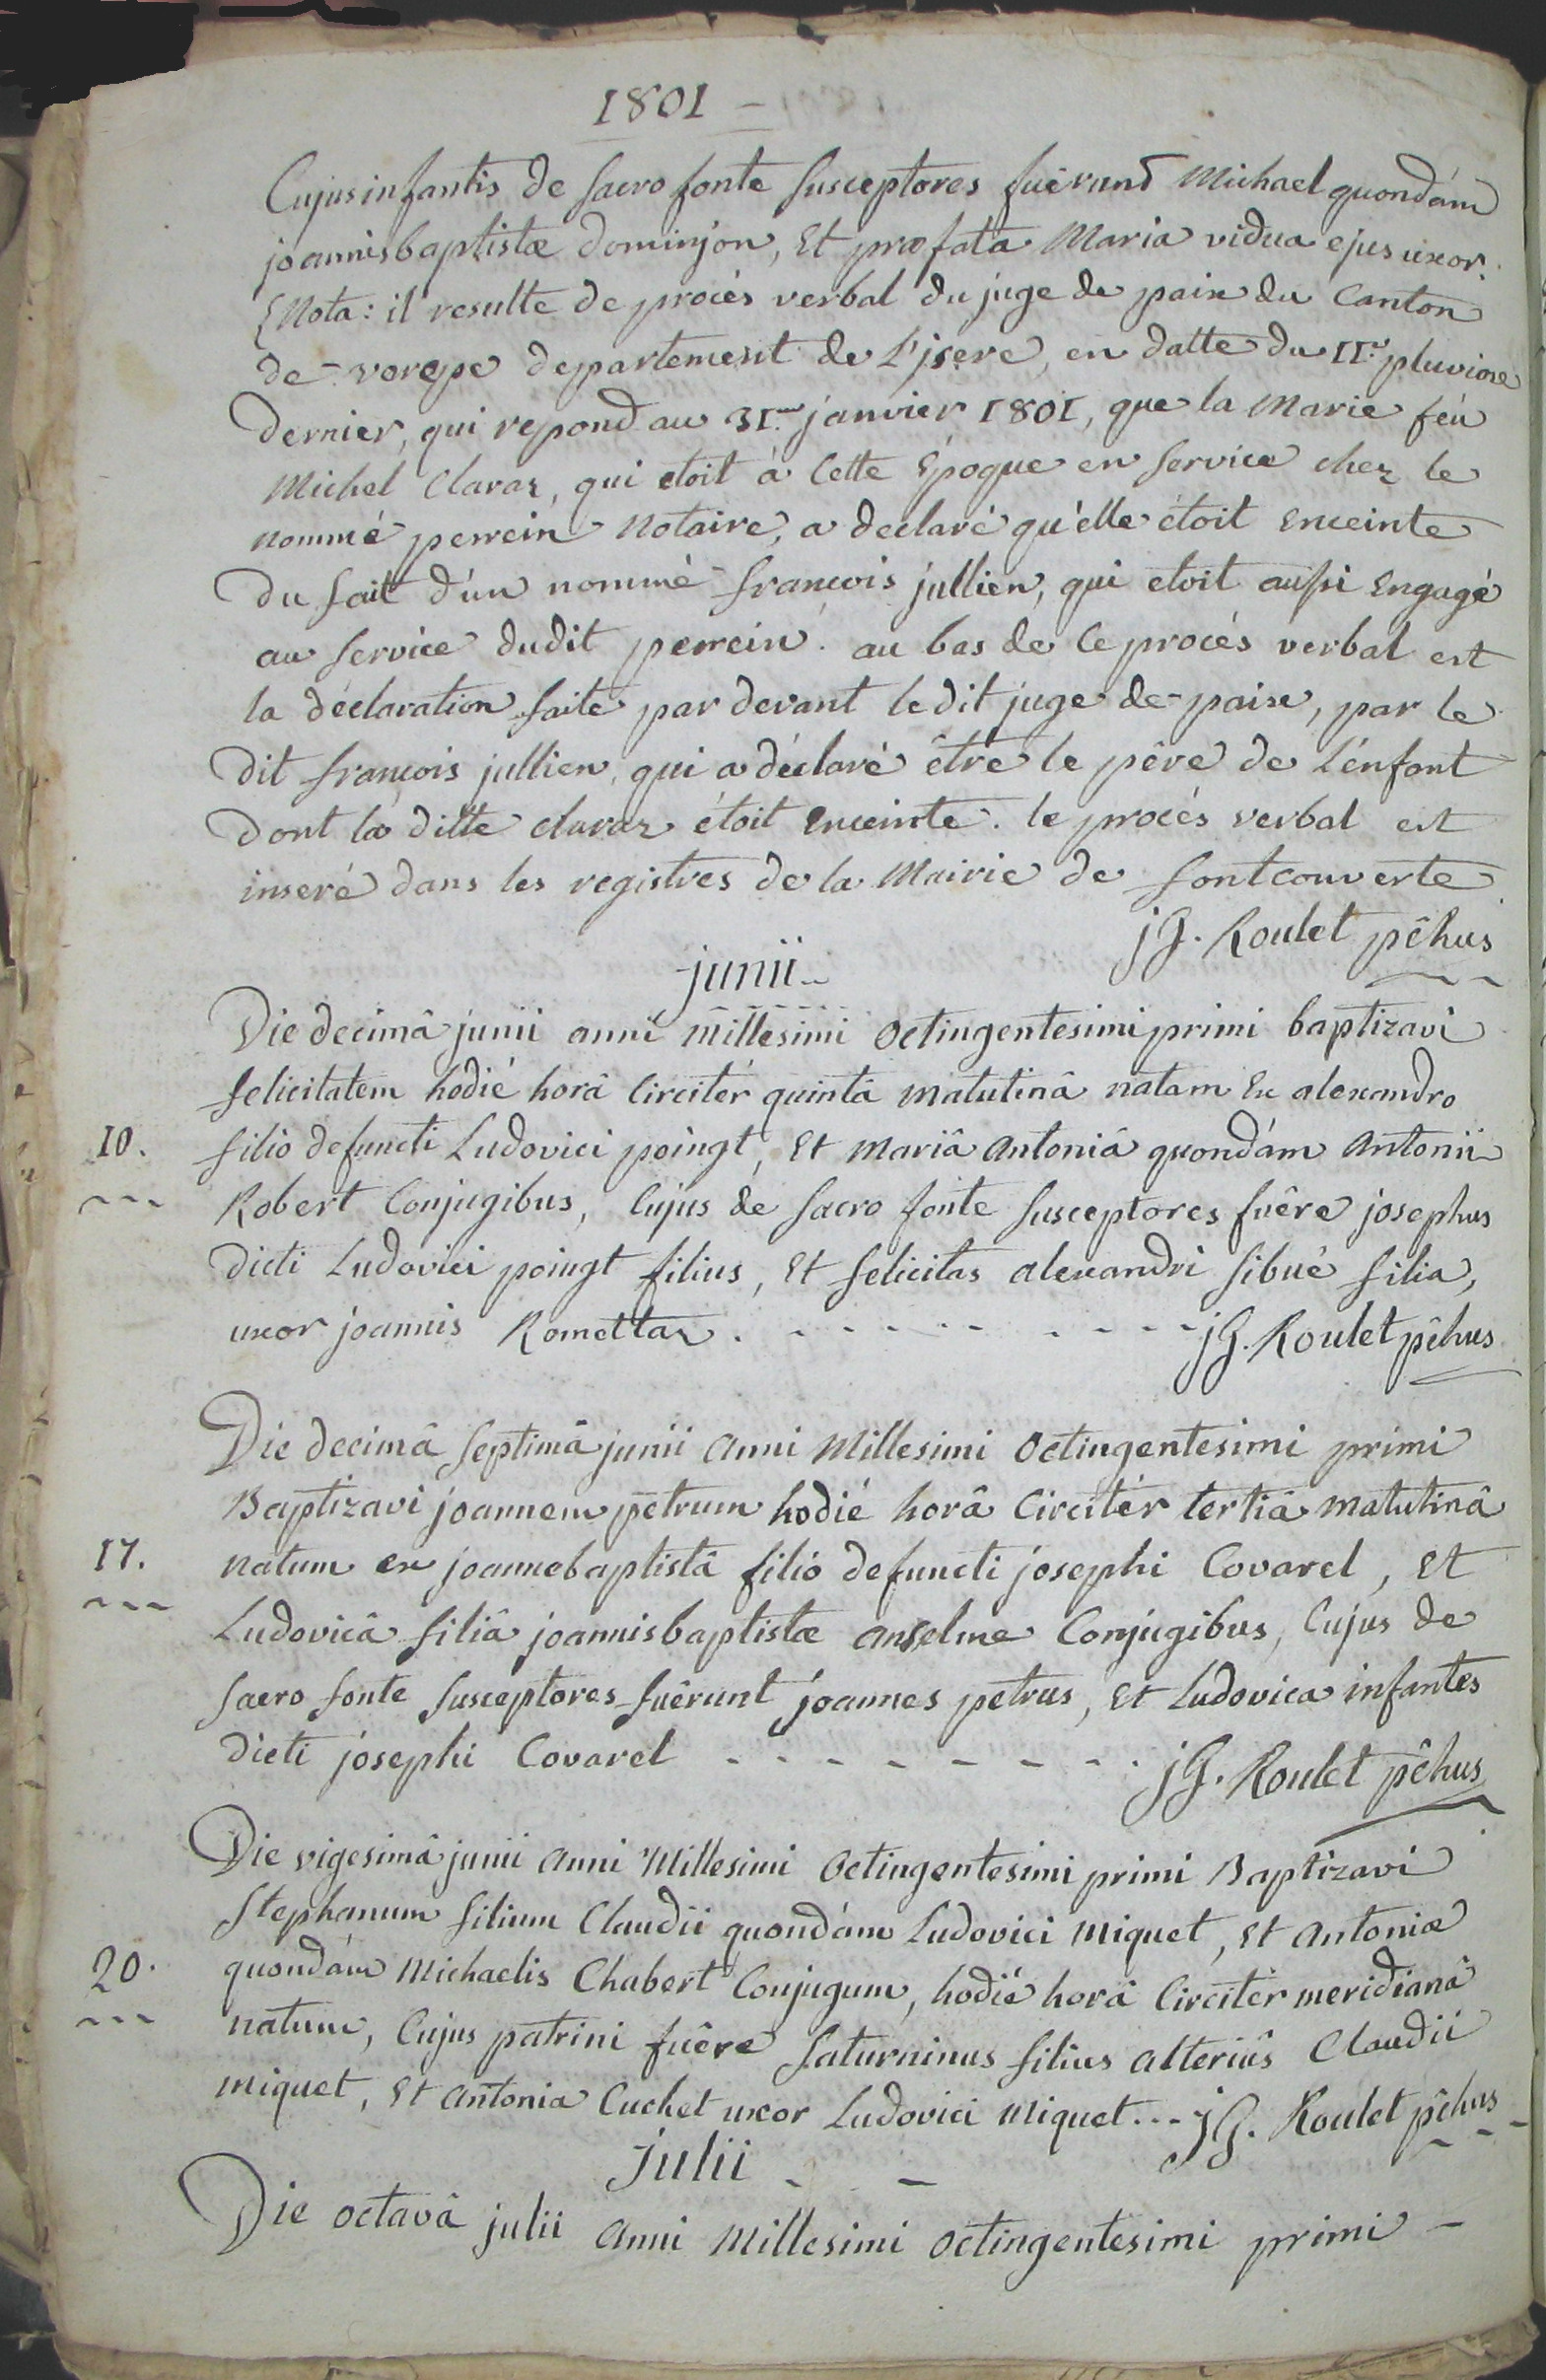 1801 -
Cujus infantis de sacro fonte susceptores fuêrunt Michael quondàm
joannisbaptistæ dominjon, Et præfata Maria vidua ejus uxor.
{Nota: il resulte de procés verbal du juge de paix du Canton
de vorepe departement de L'jsere, en datte du II.e pluviose
dernier, qui repond au 3I.me janvier I80I, que la Marie féu
Michel Claraz, qui etoit à Cette Époque en service chez le
nommé perrein Notaire, a declaré qu'elle étoit Enceinte
du fait d'un nommé francois jullien, qui etoit aussi Engagé
au service dudit perrein. au bas de Ce procés verbal est
la déclaration faite par devant le dit juge de paix, par le
dit francois jullien, qui a déclaré être le pêre de L'énfant
dont la ditte claraz étoit Enceinte. le procés verbal est
inseré dans les registres de la Mairie de fontcouverte
jG. Roulet pêhus
junii
Die decimâ junii anni Millesimi Octingentesimi primi baptizavi
felicitatem hodié horâ Circitér quintâ matutinâ natam Ex alexandro
10. filio defuncti Ludovici poingt, Et Mariâ Antoniâ quondàm Antonii
Robert Conjugibus, Cujus de sacro fonte susceptores fuêre josephus
dicti Ludovici poingt filius, Et felicitas alexandri sibué filia,
uxor joannis Romettaz. - - - - - - - - - jG. Roulet pêhus
Die decimâ septimâ junii Anni Millesimi Octingentesimi primi
Baptizavi joannem petrum hodié horâ Circitér tertiâ matutinâ
17. natum ex joannebaptistâ filio defuncti josephi Covarel, Et
Ludovicâ filiâ joannisbaptistæ anselme Conjugibus, Cujus de
sacro fonte susceptores fuêrunt joannes petrus, Et Ludovica infantes
dicti josephi Covarel - - - - - - - - jG. Roulet pêhus
Die vigesimâ junii Anni Millesimi Octingentesimi primi Baptizavi
Stephanum filium Claudii quondàm Ludovici Miquet, Et Antoniæ
20. quondàm Michaelis Chabert Conjugum, hodié horâ Circitér meridianâ
natum, Cujus patrini fuêre saturninus filius alteriûs Claudii
Miquet, Et Antonia Cuchet uxor Ludovici Miquet... jG. Roulet pêhus
Julii - -
Die octavâ julii Anni Millesimi Octingentesimi primi -